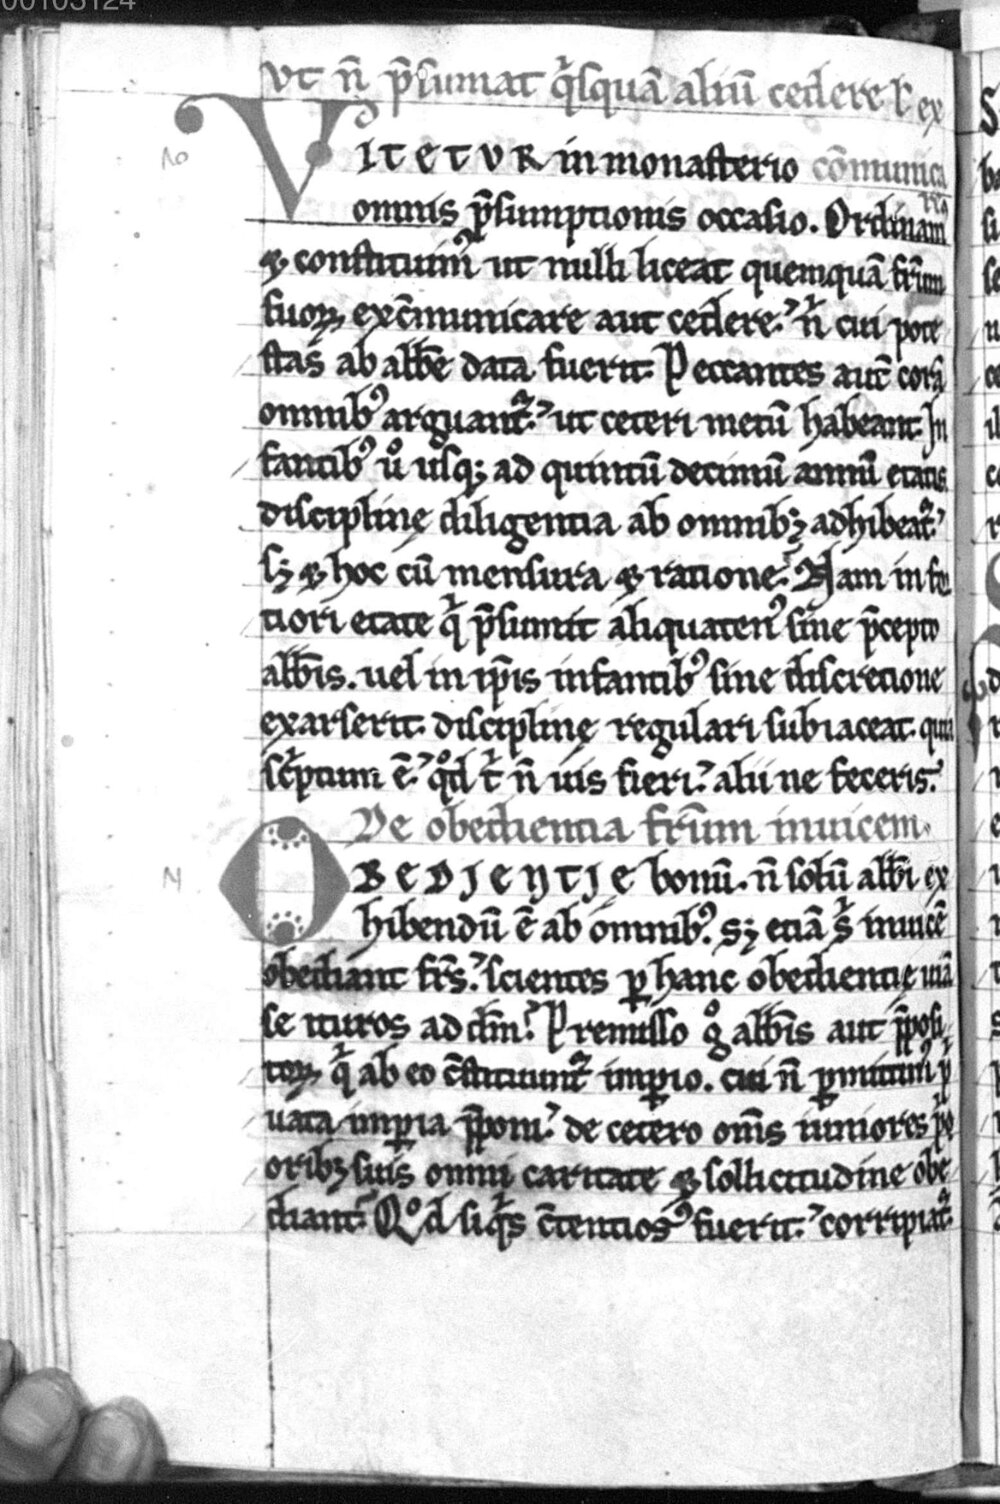 00103124
Vt n̄ p̄sumat q̇squā aliū cedere ł ex
VITETVR in monasterio cōmunica
omnis p̄sumptionis occasio. Ordinam᷒
& constituim᷒ ut nulli liceat quemquā fr̄um
suoꝝ exc̄municare aut cedere. n̄ cui pote
stas ab abb̄e data fuerit. Peccantes aut̄ corā
omnib᷒ arguant᷑. ut ceteri metū habeant. In
fantib᷒ ů usq; ad quintū decimū annū etatis
disciplinę diligentia ab omnibꝫ adhibeat᷑.
sꝫ & hoc cū mensura & ratione. Nam in for
tiori etate q̇ p̄sumit aliquaten᷒ sine p̄cepto
abb̄is. uel in ip̄is infantib᷒ sine discretione
exarserit. disciplinę regulari subiaceat. quia
sċptum ē. qđ ṫ n̄ uis fieri. alii ne feceris.
De obedientia fr̄um inuicem.
OBEDIENTIE bonū. n̄ solū abb̄i ex
hibendū ē ab omnib᷒. sꝫ etiā s̄ inuicē
obediant fr̄s. scientes ꝑ hanc obedientię uiā
se ituros ad dm̄. Premisso g̊ abb̄is aut p̄posi
toꝝ q̇ ab eo c̄stituunt᷑ imꝑio. cui n̄ ꝑmittim᷒ ṗ
uata imꝑia p̄poni. de cetero om̄s iuniores ṗ
oribꝫ suis omni caritate & sollicitudine obe
diant. Qod siq̇s c̄tentios᷒ fuerit. corripiat᷑.